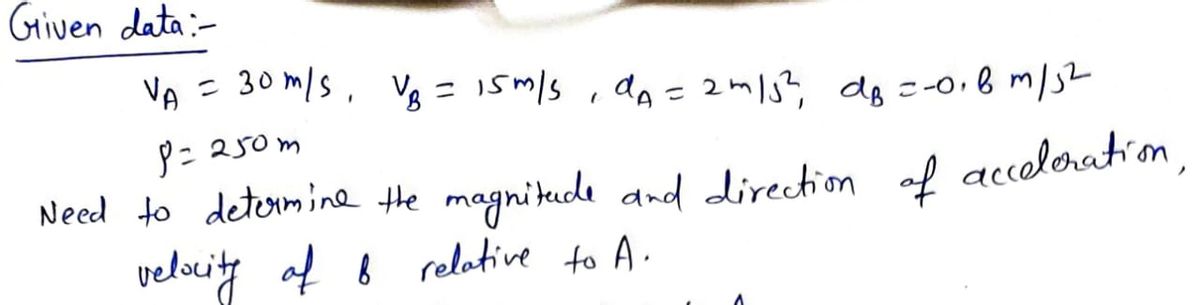 Given data:-
V_A = 30 m/s, V_B = 15 m/s, a_A = 2 m/s², a_B = -0.8 m/s²
ρ = 250 m
Need to determine the magnitude and direction of acceleration,
velocity of B relative to A.